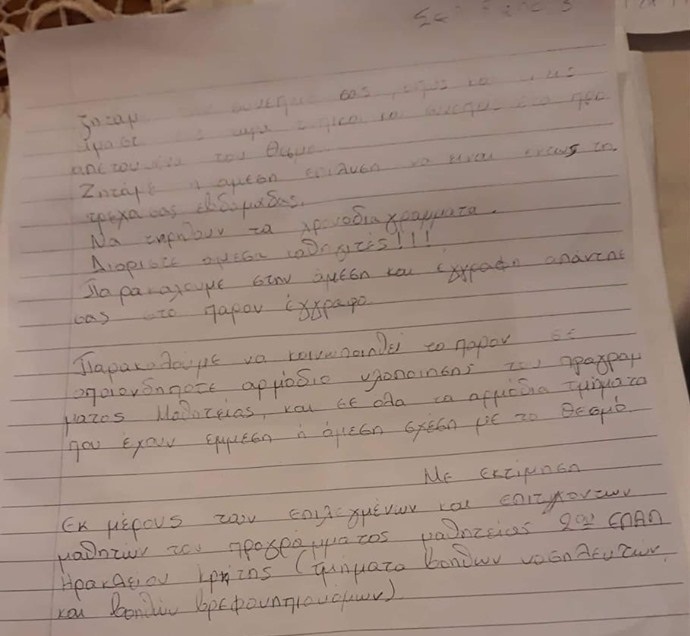 Ζηταμε σας
του θεσμου
Ζηταμε η αμεση επιλυση να ειναι εντος τη
τρεχα σας εβδομαδας.
Να τηρηθουν τα χρονοδιαγραμματα.
Διοριστε αμεσα καθηγητές!!!
Παρακαλουμε στην άμεση και έγγραφη απάντησ
σας στο παρον έγγραφο
Παρακαλουμε να κοινοποιηθεί το παρον σε
οποιονδηποτε αρμόδιο υλοποιησης του προγραμ
ματος Μαθητείας, και σε ολα τα αρμόδια τμήματα
που έχουν εμμεση ή άμεση σχέση με το θεσμό.
Με εκτίμηση
Εκ μέρους των επιλεγμένων και επιτυχοντων
μαθητων του προγράμματος μαθητείας 2ου ΕΠΑΛ
Ηρακλειου Κρήτης (τμήματα βοηθων νοσηλευτων
και βοηθών βρεφονηπιοκομων)